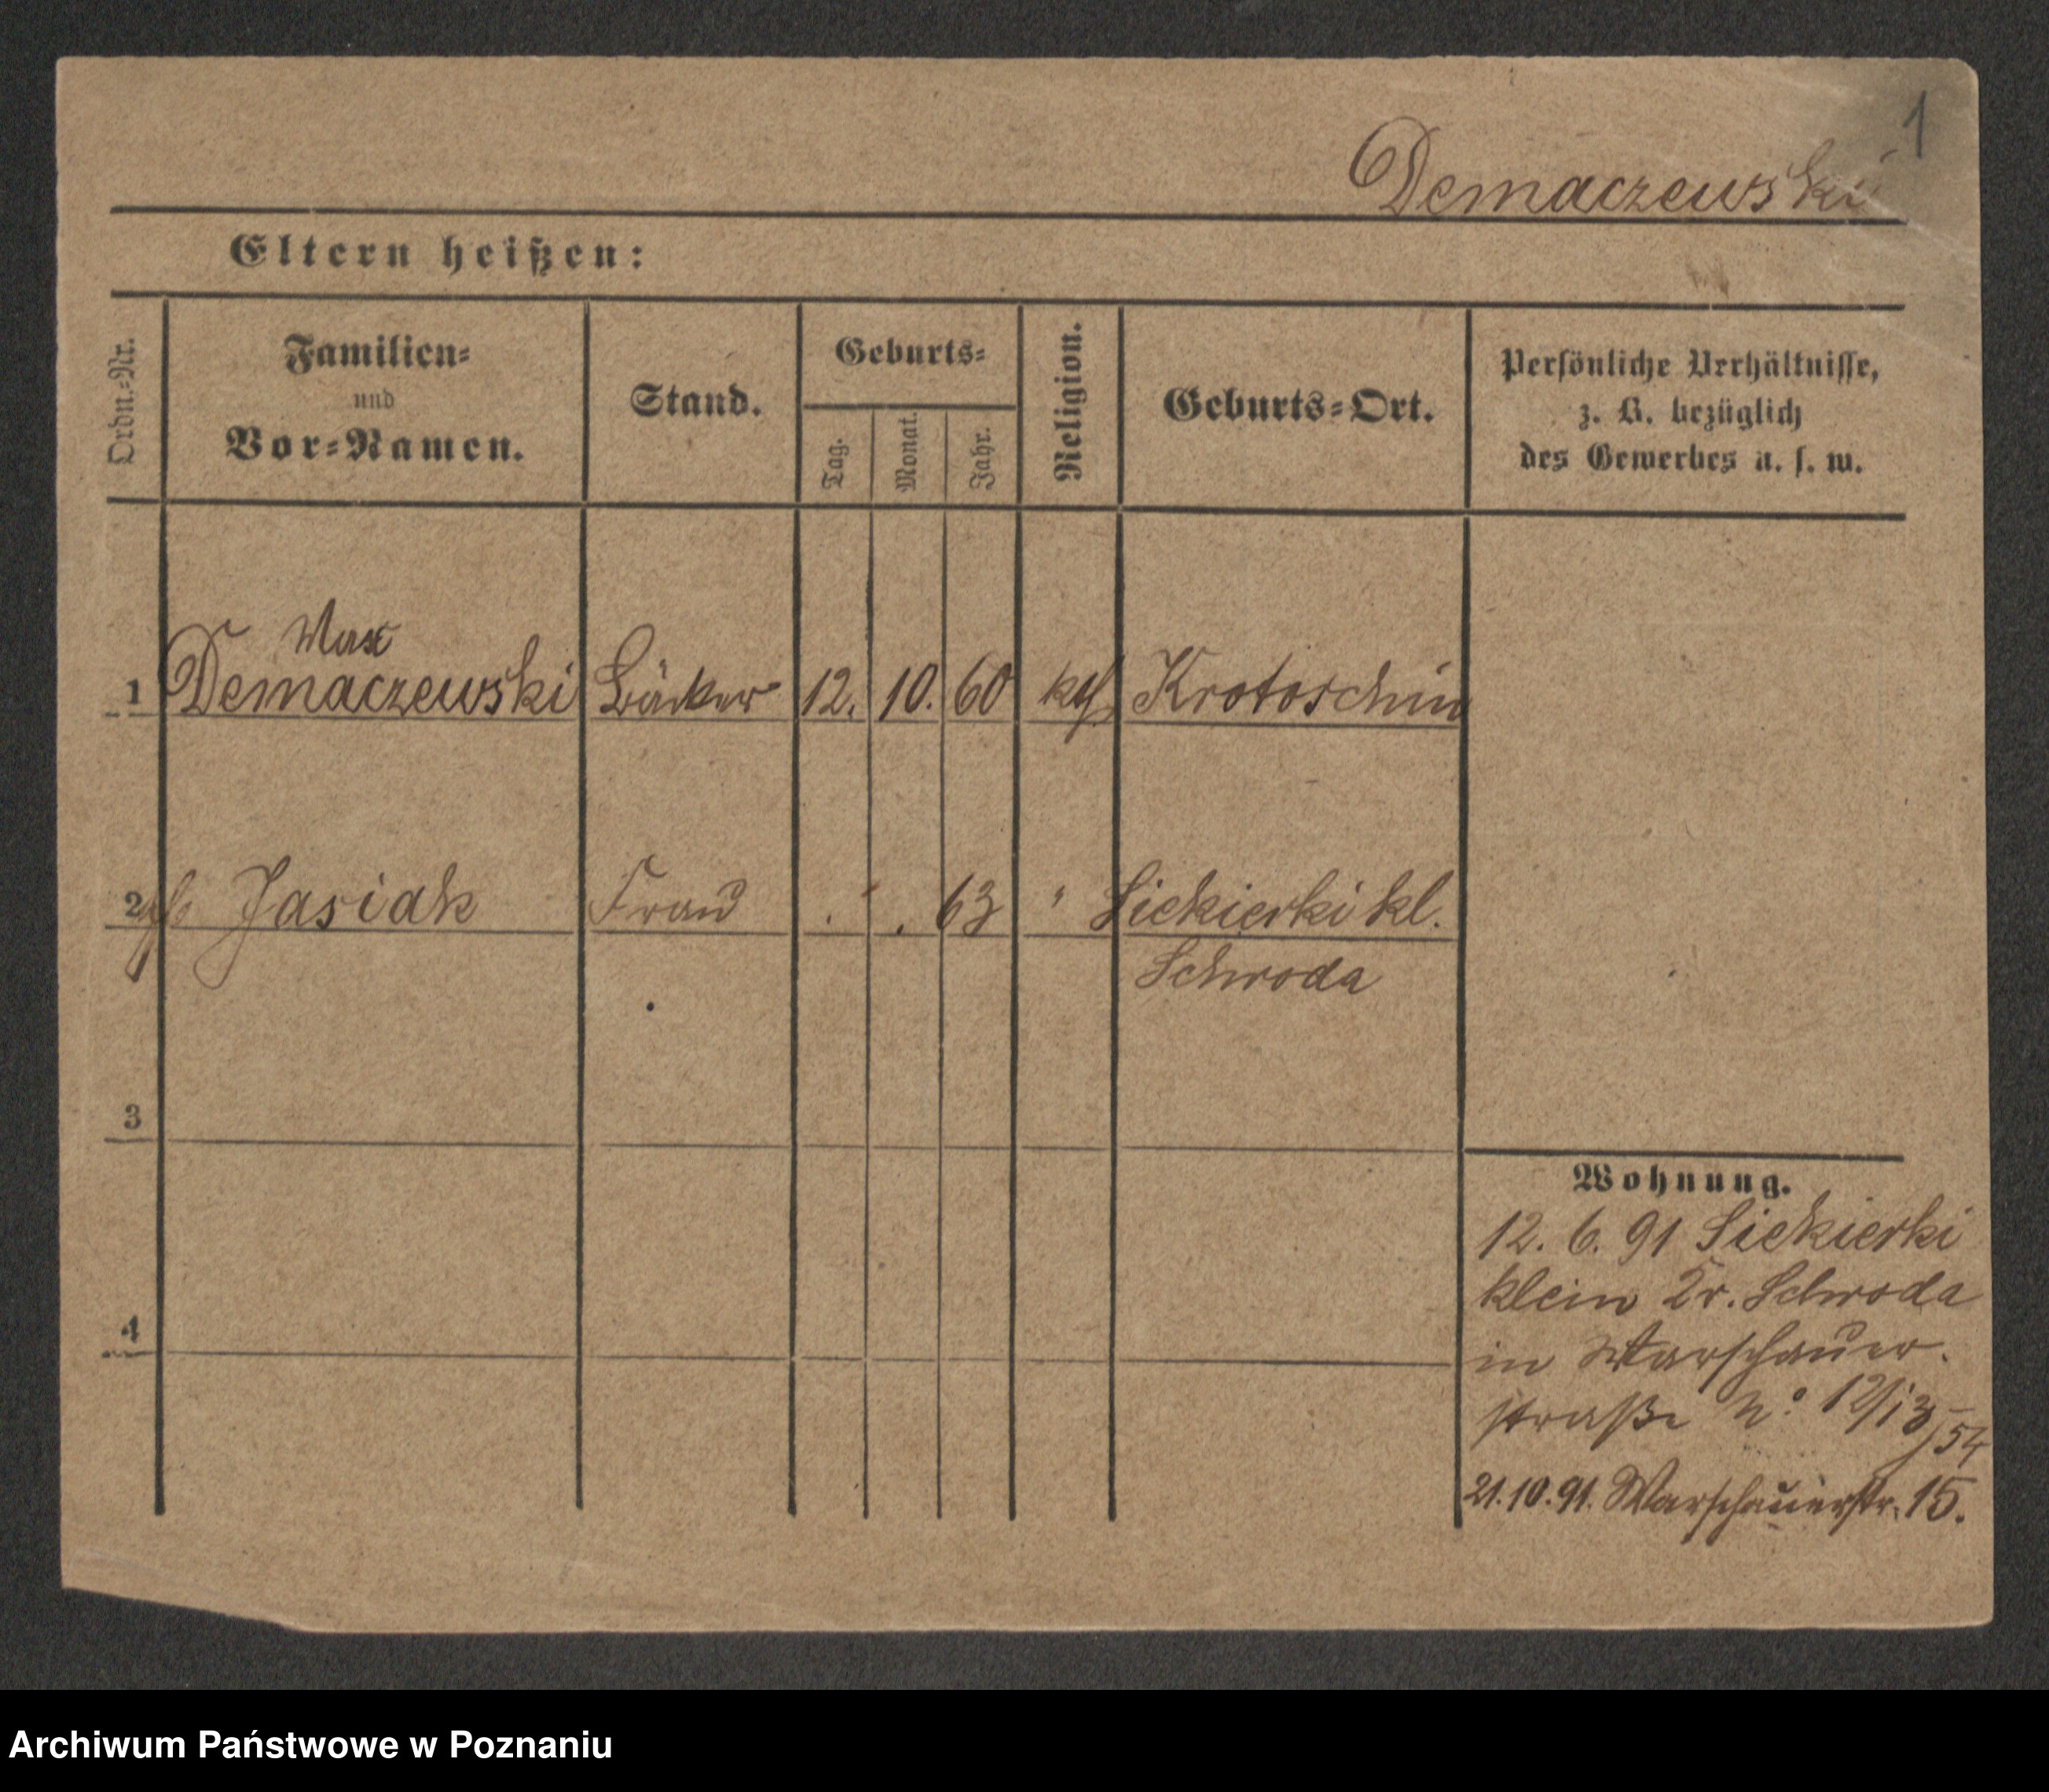 1
Demaczewski
Eltern heißen:
Ordn.-Nr.
Familien-
und
Vor-Namen.
Stand.
Geburts-
Tag.
Monat.
Jahr.
Religion.
Geburts-Ort.
Persönliche Verhältnisse,
z. B. bezüglich
des Gewerbes u. s. w.
Max
1 Demaczewski Bäcker 12. 10. 60 kth Krotoschin
2 Jasiak Frau . " . 63 " Siekierki kl.
Schroda
3
4
Wohnung.
12. 6. 91 Siekierki
klein Kr. Schroda
in Warschauer-
straße No 12/13
54
21.10.91. Warschauerstr. 15.
Archiwum Państwowe w Poznaniu